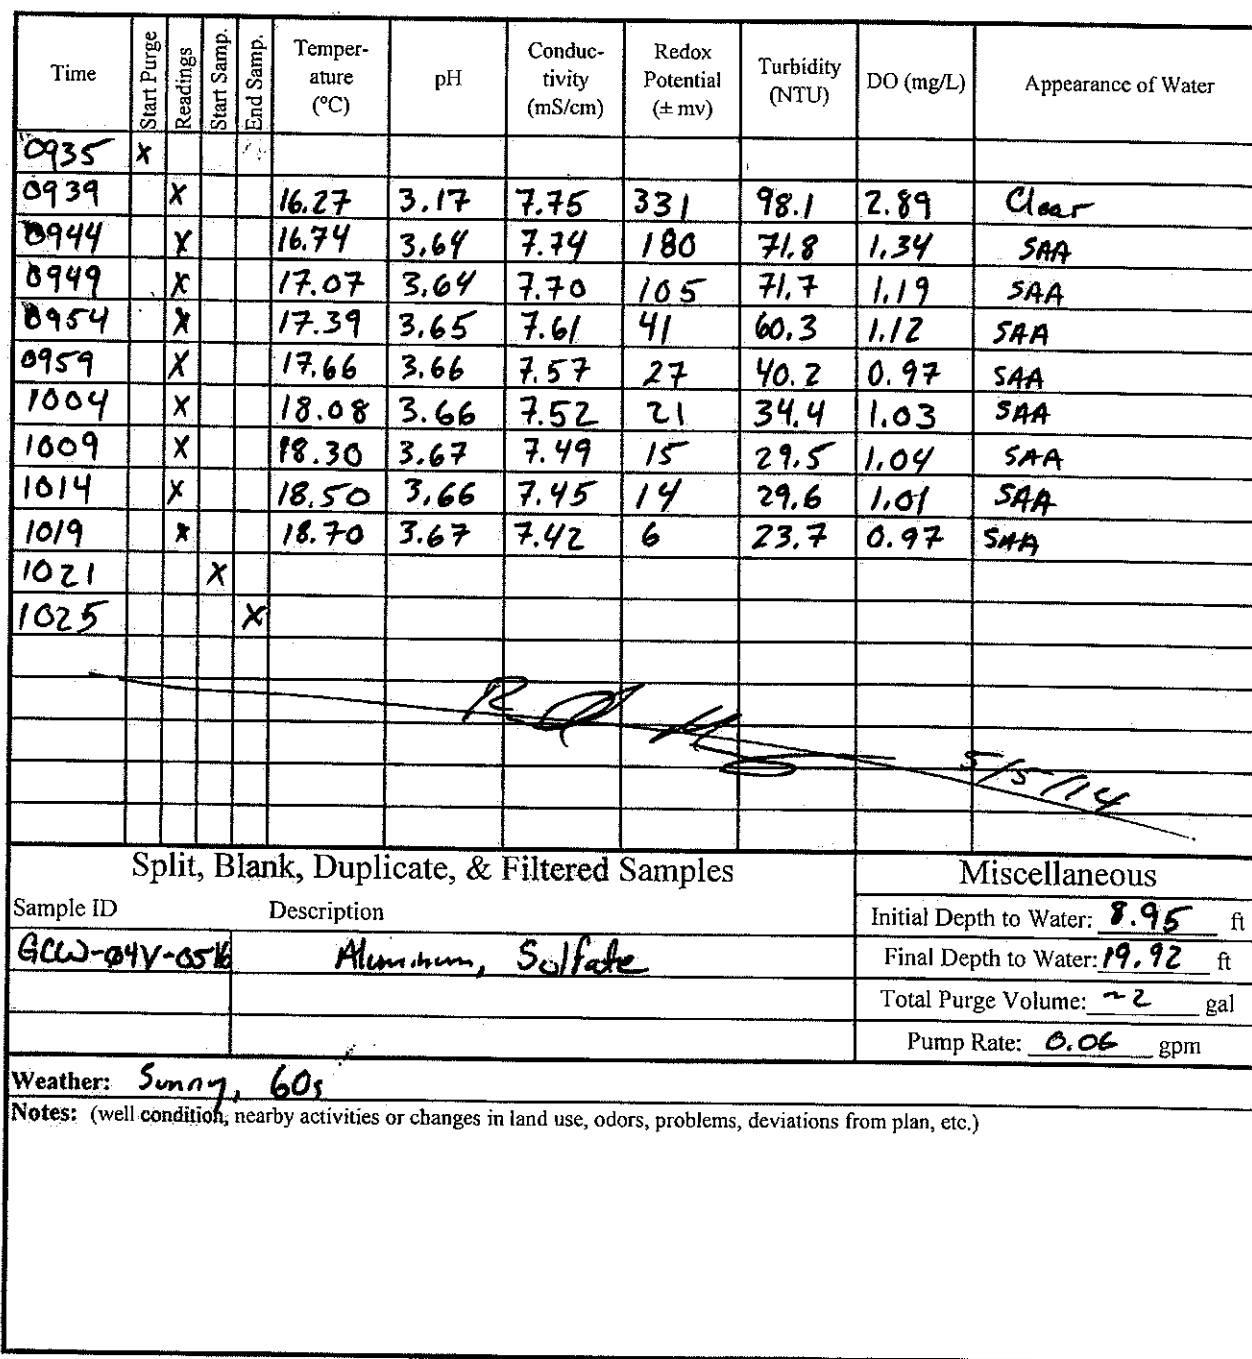 Time Start Purge Readings Start Samp. End Samp. Temper- ature (°C) pH Conduc- tivity (mS/cm) Redox Potential (± mv) Turbidity (NTU) DO (mg/L) Appearance of Water
0935 X
0939 X 16.27 3.17 7.75 331 98.1 2.89 Clear
0944 X 16.74 3.64 7.74 180 71.8 1.34 SAA
0949 X 17.07 3.64 7.70 105 71.7 1.19 SAA
0954 X 17.39 3.65 7.61 41 60.3 1.12 SAA
0959 X 17.66 3.66 7.57 27 40.2 0.97 SAA
1004 X 18.08 3.66 7.52 21 34.4 1.03 SAA
1009 X 18.30 3.67 7.49 15 29.5 1.04 SAA
1014 X 18.50 3.66 7.45 14 29.6 1.01 SAA
1019 X 18.70 3.67 7.42 6 23.7 0.97 SAA
1021 X
1025 X
5/5/14
Split, Blank, Duplicate, & Filtered Samples Miscellaneous
Sample ID Description Initial Depth to Water: 8.95 ft
Aluminum, Sulfate Final Depth to Water: 19.92 ft
Total Purge Volume: ~2 gal
Pump Rate: 0.06 gpm
Weather: Sunny, 60s
Notes: (well condition, nearby activities or changes in land use, odors, problems, deviations from plan, etc.)